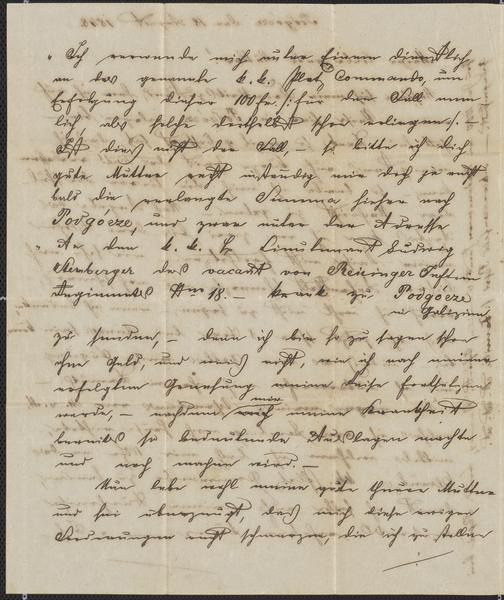 Ich verwende mich unter Einem dienstlich
an das genannte k. k. Platz Commando, um
Erfolgung dieser 100 fr. /: für den Fall näm-
lich, als solche derthselbst schon erliegen :/. —
Ist dieß nicht der Fall, — so bitte ich dich
gute Mutter recht inständig mir doch ja recht
bald die verlangte Summa hieher nach
Podgórze, und zwar unter der Adresse
" An den k. k. H Lieutenant Ludwig
des vacant von Reisinger Infterie
Regiments Nro 18. — krank zu Podgórze
in Galizien
zu senden, — denn ich bin so zu sagen schon
ohne Geld, und weiß nicht, wie ich nach meiner
erfolgten Genesung meine Reise fortsetzen
werde, — nachdem mir meine Krankheit
bereits so bedeutende Auslagen machte
und noch machen wird. —
Nun lebe wohl meine gute theure Mutter
und sei überzeugt, daß mich diese ewigen
nicht schmerzen, die ich zu stellen